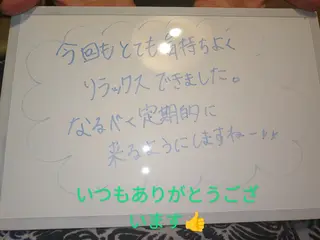 今回もとても気持ちよく
リラックスできました。
なるべく定期的に
来るようにしますねー♪♪
いつもありがとうござ
います👍